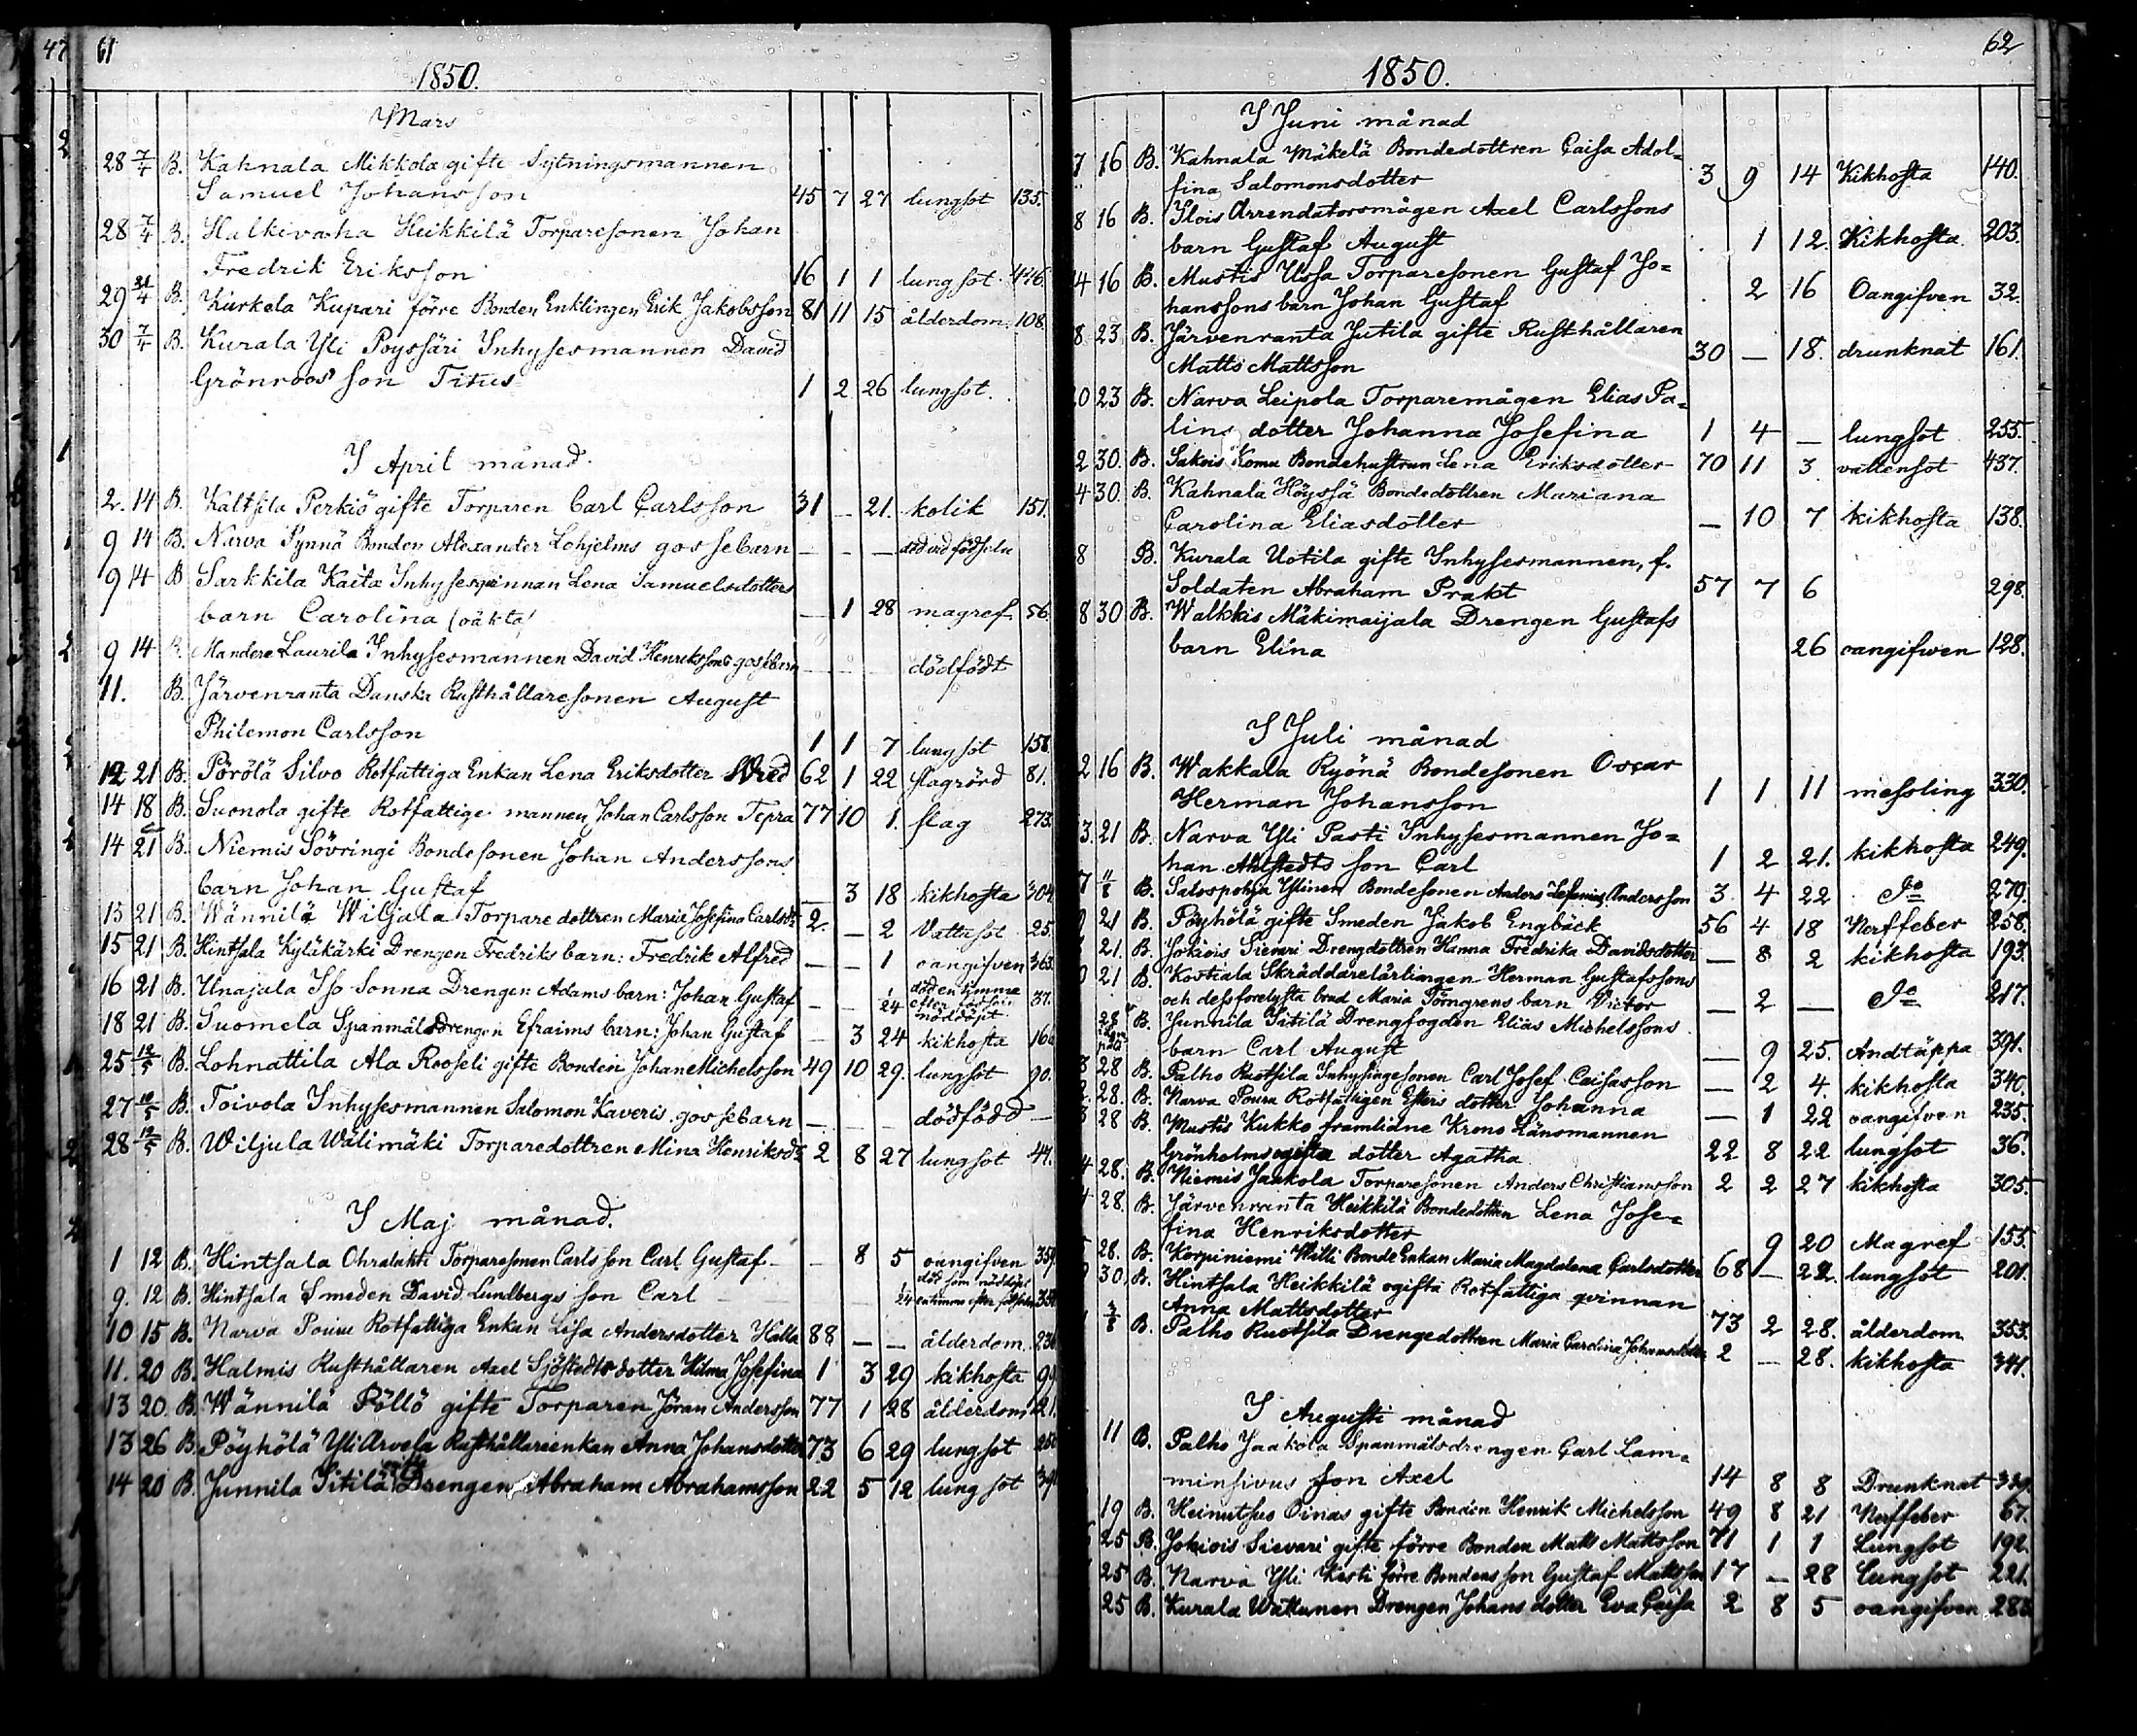 47 61
1850.
Mars
28 7/4 B. Kahnala Mikkola gifte Sytningsmannen
Samuel Johansson 45 7 27 lungsot 135.
28 7/4 B. Halkivaha Heikkilä Torparesonen Johan
Fredrik Eriksson 16 1 1 lungsot. 446.
29 21/4 B. Kurkela Kupari förre Bonden Enklingen Erik Jakobsson 81 11 15 ålderdom. 108.
30 7/4 B. Kurala Yli Poyssäri Inhysesmannen David
Grönroos' son Titus 1 2 26 lungsot.
I April månad.
2. 14 B. Kaltsila Perkiö gifte Torparen Carl Carlsson 31 _ 21. kolik 151.
9 14 B. Narva Pynnä Bonden Alexander Lohjelms gossebarn _ _ _ död vid födseln
9 14 B Sarkkila Kaita Inhysesqvinnan Lena Samuelsdotters
barn Carolina (oäkta) _ 1 28 magref 56.
9 14 Mandere Laurila Inhysesmannen David Henrikssons gossebarn _ _ _ dödfödt
11. B. Järvenranta Danska Rusthållaresonen August
Philemon Carlsson 1 1 7 lungsot 158
12 21 B. Pörölä Silvo Rotfattiga Enkan Lena Eriksdotter Wred 62 1 22 slagrörd 81.
14 18 B. Suonola gifte Rotfattige mannen Johan Carlsson Tepra 77 10 1. slag 273.
14 21 B. Niemis Sövringi Bondesonen Johan Anderssons
barn Johan Gustaf 3 18 kikhosta 304
15 21 B. Wännilä Wiljala Torparedottren Maria Josefina Carlsdr 2. _ 2 Vattusot 25.
15 21 B. Hintsala Kyläkärki Drengen Fredriks barn: Fredrik Alfred _ _ 1 oangifven 363.
16 21 B. Unajala Iso Sonna Drengen Adams barn: Johan Gustaf _ _ 1/24 död en timma efter födseln nöddöpt 37.
18 21 B. Suomela Spanmålsdrengen Efraims barn: Johan Gustaf _ 3 24 kikhosta 166
25 12/5 B. Lohnattila Ala Rooseli gifte Bonden Johan Michelsson 49 10 29. lungsot 90.
27 10/5 B. Toivola Inhysesmannen Salomon Kaveris gossebarn _ _ _ dödfödd _
28 12/5 B. Wiljula Wälimäki Torparedottren Mina Henriksdr 2 8 27 lungsot 44.
I Maj månad.
1 12 B. Hintsala Ohralahti Torparesonen Carls son Carl Gustaf _ 8 5 oangifven 359
9. 12 B. Hintsala Smeden David Lundbergs son Carl
10 15 B. Narva Pouru Rotfattiga Enkan Lisa Andersdotter Halla 88 _ _ ålderdom. 236
11. 20 B. Halmis Rusthållaren Axel Sjöstedts dotter Hilma Josefina 1 3 29 kikhosta 99
13 20. B. Wännilä Pöllö gifte Torparen Jöran Andersson 77 1 28 ålderdom 21.
13 26 B. Pöyhölä Yli Arvela Rusthållareenkan Anna Johansdotter 73 6 29 lungsot 260
14 20 B. Junnila Sitilä Drengen Abraham Abrahamsson 22 5 12 lungsot 391
62
1850.
I Juni månad
7 16 B. Kahnala Mäkelä Bondedottren Caisa Adol=
fina Salomonsdotter 3 9 14 Kikhosta 140.
8 16 B. Ylois Arrendatorsmågen Axel Carlssons
barn Gustaf August 1 12. Kikhosta 203.
4 16 B. Mustis Ussa Torparesonen Gustaf Jo=
hanssons barn Johan Gustaf 2 16 Oangifven 32.
8 23 B. Järvenranta Jutila gifte Rusthållaren
Matts Mattsson 30 — 18. drunknat 161.
0 23 B. Narva Leipola Torparemågen Elias Pa=
lins dotter Johanna Josefina 1 4 _ lungsot 255.
2 30. B. Sakois Komu Bondehustrun Lena Eriksdotter 70 11 3. vattensot 437.
4 30. B. Kahnala Höyssä Bondedottren Mariana
Carolina Eliasdotter — 10 7 kikhosta 138.
8 B. Kurala Uotila gifte Inhysesmannen, f.
Soldaten Abraham Prakt 57 7 6 298.
8 30 B. Walkkis Mäkimaijala Drengen Gustafs
barn Elina 26 oangifwen 128.
I Juli månad
2 16 B. Wakkala Ryönä Bondesonen Oscar
Herman Johansson 1 1 11 messling 330.
3 21 B. Narva Yli Pasti Inhysesmannen Jo=
han Ahlstedts son Carl 1 2 21. kikhosta 249.
7 11/8 B. Salospohja Ylinen Bondesonen Anders Andersson 3 4 22 Do 279.
21 B. Pöyhölä gifte Smeden Jakob Engbäck 56 4 18 Nerffeber 258.
21. B. Jokiois Sievari Drengdottren Hanna Fredrika Davidsdotter _ 8 2 kikhosta 193.
0 21 B. Kostiala Skräddarelärlingen Herman Gustafssons
och dess förelysta brud Maria Törngrens barn Victor _ 2 _ Do 217.
28 B. Junnila Sitilä Drengfogden Elias Michelssons
barn Carl August _ 9 25. Andtäppa 391.
3 28 B. Palho Ruotsila Inhysingesonen Carl Josef Caisasson _ 2 4. kikhosta 340.
2. 28. B. Narva Pouru Rotfattigen Esters dotter Johanna _ 1 22 oangifven 235.
3 28 B. Mustis Kukko framlidne Krono Länsmannen
Grönholms ogifta dotter Agatha 22 8 22 lungsot 36.
4 28. B. Niemis Jaakola Torparesonen Anders Christiansson 2 2 27 kikhosta 305.
4 28. B. Järvenranta Heikkilä Bondedottren Lena Jose=
fina Henriksdotter 9 20 Magref 155.
5 28. B. Korpiniemi Willi Bonde Enkan Maria Magdalena Carlsdotter 68 _ 22. lungsot 201.
30. B. Hintsala Heikkilä ogifta Rotfattiga qvinnan
Anna Mattsdotter 73 2 28. ålderdom 353.
3/8 B. Palho Ruotsila Drengedottren Maria Carolina Johansdotter 2 _ 28. kikhosta 341.
I Augusti månad
11 B. Palho Jaakola Spanmålsdrengen Carl Lam=
minsivus son Axel 14 8 8 Drunknat 329.
19 B. Heinutsuo Oinas gifte Bonden Henrik Michelsson 49 8 21 Nerffeber 67.
25 B. Jokiois Sievari gifte förre Bonden Matts Mattsson 71 1 1 Lungsot 192.
25 B. Narva Yli Kesti förre Bondens son Gustaf Mattsson 17 _ 28 Lungsot 221.
25 B. Kurala Wattunen Drengen Johans dotter Eva Caisa 2 8 5 oangifven 285